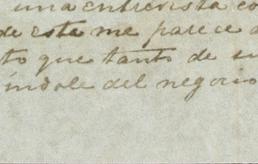 una entrevista co
de este me parece a
to que tanto de su
índole del negocio